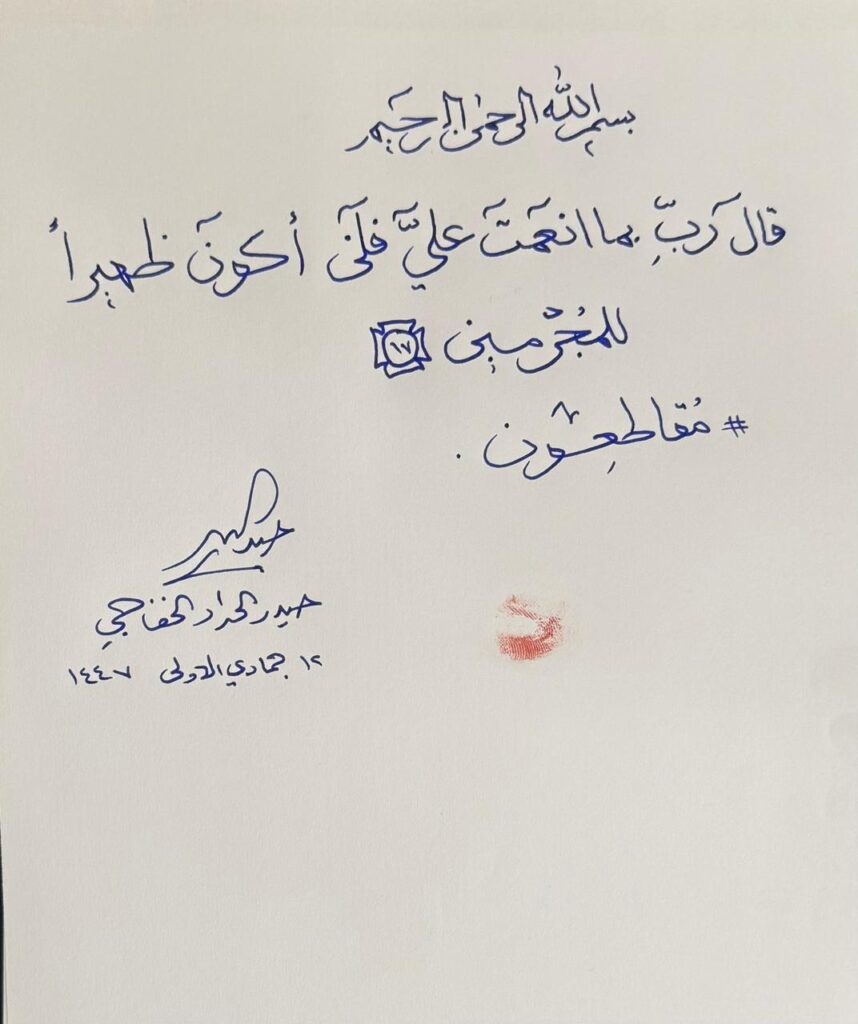 بسم الله الرحمن الرحيم
قال رَبِّ بما انعَمتَ عليَّ فلَن أكونَ ظهيراً
للمُجْرمين ١٧
# مُقاطعون .
حيدر
حيدر الحداد الخفاجي
١٢ جمادي الاولى ١٤٤٧